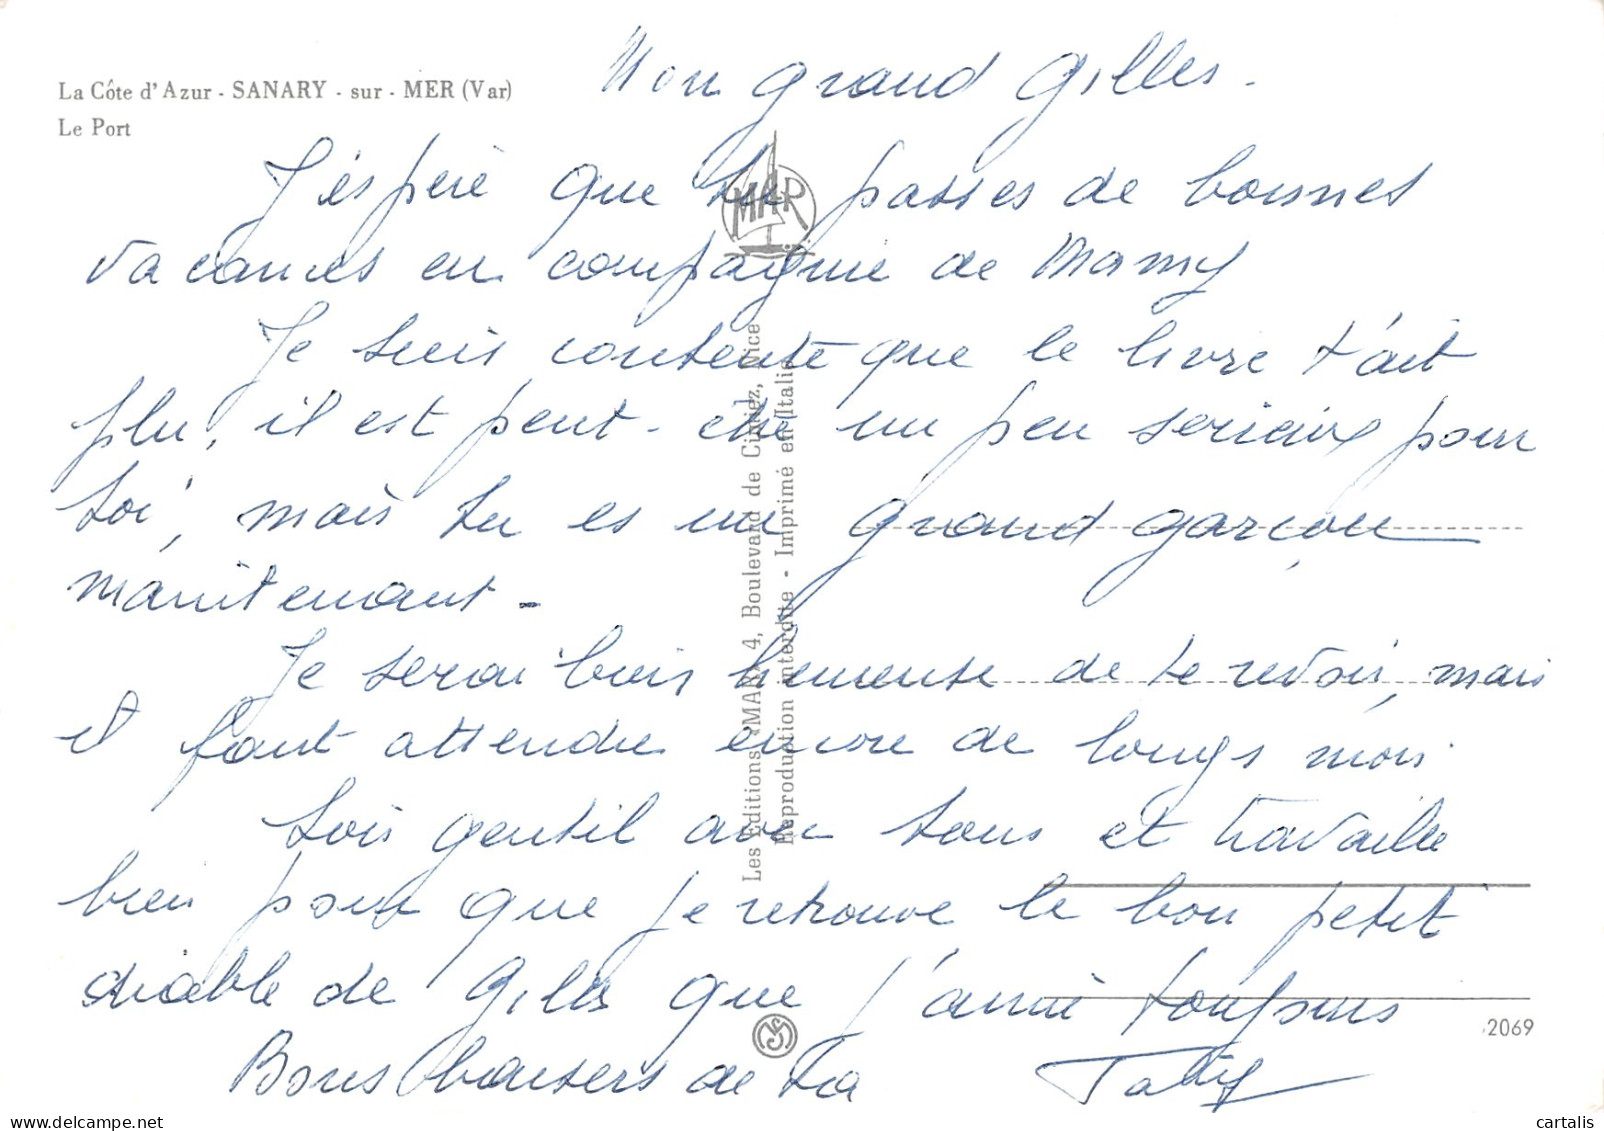 La Côte d'Azur - SANARY - sur - MER (Var)
Le Port
Mon grand Gilles.
J'espère que tu passes de bonnes
vacances en compagnie de Mamy
Je suis contente que le livre t'ait
plu, il est peut-être un peu serieux pour
toi, mais tu es un grand garçon
maintenant.
Je serai bien heureuse de te revoir, mais
il faut attendre encore de longs mois
Sois gentil avec tous et travaille
bien pour que je retrouve le bon petit
diable de Gilles que j'aime toujours
Bons baisers de ta Tatty
MAR
Les Editions «MAR» 4, Boulevard de Cimiez, Nice
Reproduction interdite - Imprimé en Italie
2069
cartalis
www.delcampe.net